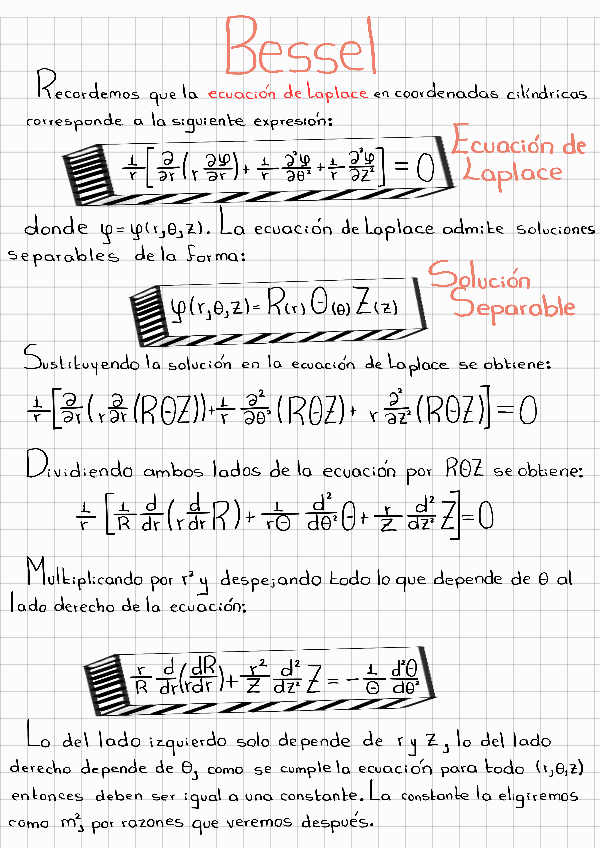 Bessel
Recordemos que la ecuación de Laplace en coordenadas cilíndricas
corresponde a la siguiente expresión:
1/r [∂/∂r (r ∂φ/∂r) + 1/r ∂²φ/∂θ² + 1/r ∂²φ/∂z²] = 0
Ecuación de
Laplace
donde φ = φ(r,θ,z). La ecuación de Laplace admite soluciones
separables de la forma:
φ(r,θ,z) = R(r) Θ(θ) Z(z)
Solución
Separable
Sustituyendo la solución en la ecuación de Laplace se obtiene:
1/r [∂/∂r (r ∂/∂r (RΘZ)) + 1/r ∂²/∂θ² (RΘZ) + r ∂²/∂z² (RΘZ)] = 0
Dividiendo ambos lados de la ecuación por RΘZ se obtiene:
1/r [1/R d/dr (r d/dr R) + 1/rΘ d²/dθ² Θ + r/Z d²/dz² Z] = 0
Multiplicando por r² y despejando todo lo que depende de θ al
lado derecho de la ecuación:
r/R d/dr (r dR/dr) + r²/Z d²/dz² Z = - 1/Θ d²Θ/dθ²
Lo del lado izquierdo solo depende de r y z, lo del lado
derecho depende de θ, como se cumple la ecuación para todo (r,θ,z)
entonces deben ser igual a una constante. La constante la eligiremos
como m², por razones que veremos después.